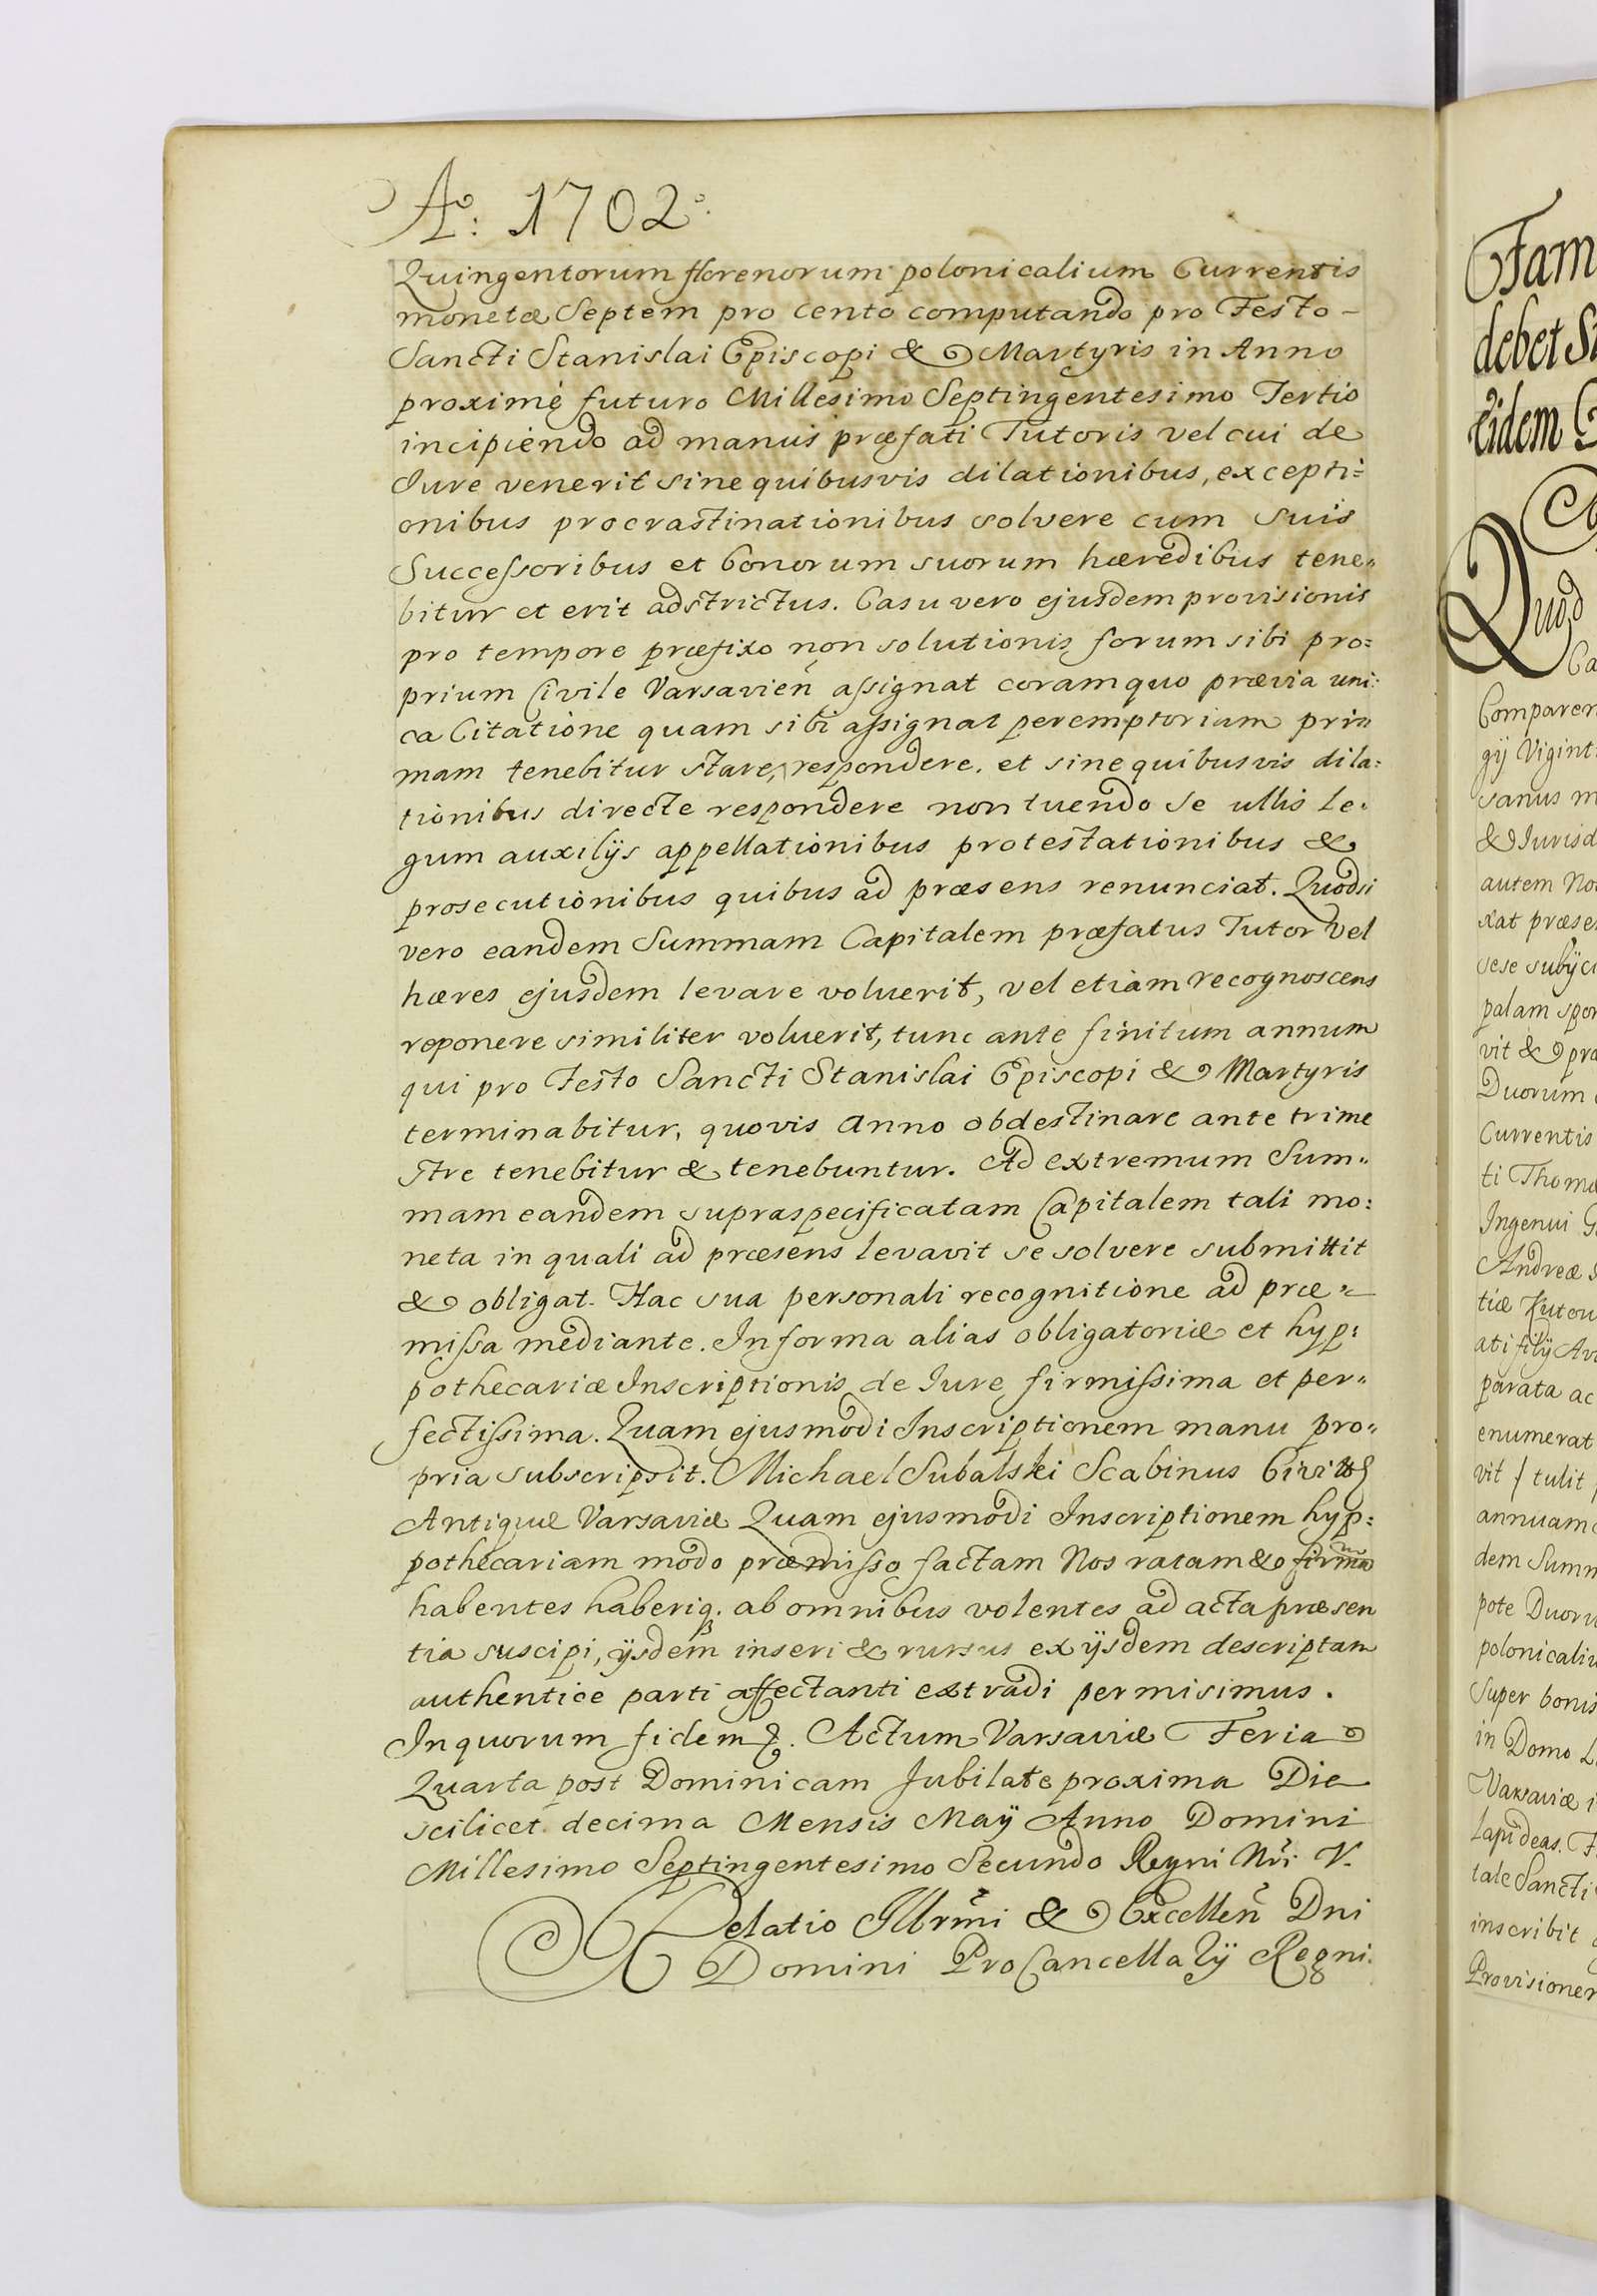 Aº: 1702º.
Quingentorum florenorum polonicalium Currentis
monetæ Septem pro cento computando pro Festo –
Sancti Stanislai Episcopi & Martyris in Anno
proximè futuro Millesimo Septingentesimo Tertio
incipiendo ad manus præfati Tutoris vel cui de
Iure venerit sine quibusvis dilationibus, excepti=
onibus procrastinationibus solvere cum suis
Successoribus et bonorum suorum hæredibus tene„
bitur et erit adstrictus. Casu vero ejusdem provisionis
pro tempore præfixo non solutionis forum sibi pro:
prium Civile Varsavien̄ assignat coram quo prævia uni:
ca Citatione quam sibi assignat peremptorium pri„
mam tenebitur stare, respondere. et sine quibusvis dila:
tionibus directe respondere non tuendo se ullis le:
gum auxilijs appellationibus protestationibus &
prosecutionibus quibus ad præsens renunciat. Quodsi
vero eandem Summam Capitalem præfatus Tutor vel
hæres ejusdem levare voluerit, vel etiam recognoscens
reponere similiter voluerit, tunc ante finitum annum
qui pro festo Sancti Stanislai Episcopi & Martyris
terminabitur, quovis anno obdestinare ante trime
stre tenebitur & tenebuntur. Ad extremum Sum„
mam eandem supraspecificatam Capitalem tali mo:
neta in quali ad præsens levavit se solvere submittit
& obligat. Hac sua personali recognitione ad præ„
missa mediante. In forma alias obligatoriæ et hyp:
pothecariæ Inscriptionis de Iure firmissima et per„
fectissima. Quam ejusmodi Inscriptionem manu pro„
pria subscripsit. Michael Subalski Scabinus Civitt
Antiquæ Varsaviæ Quam ejusmodi Inscriptionem hyp:
pothecariam modo præmisso factam Nos ratam & firmam
habentes haberiq. ab omnibus volentes ad acta præsen
tia suscipi, ijsdem inseri & rursus ex ijsdem descriptam
authentice parti affectanti extradi permisimus.
In quorum fidem &. Actum Varsaviæ Feria
Quarta post Dominicam Jubilate proxima Die
scilicet decima Mensis Maÿ Anno Domini
Millesimo Septingentesimo Secundo Regni Nr̄i V.
Relatio Illr̄mi & Excellen̄ Dni
Domini ProCancellarÿ Regni.
Fam
debet S
eidem
Quod
Ca
Comparen
gij Vigint
sanus m
& Jurisd
autem No
xat præse
sese subijci
palam spon
vit & pra
Duorum
Currentis
ti Thomæ
Ingenui G
Andreæ
tiæ Tutou
ati filij
parata ac
enumerat
vit / tulit
annuam
dem Summ
pote Duoru
polonicaliu
Super bonis
in Domo L
Varsaviæ i
lapideas. F
tale Sancti
inscribit
Provisionem